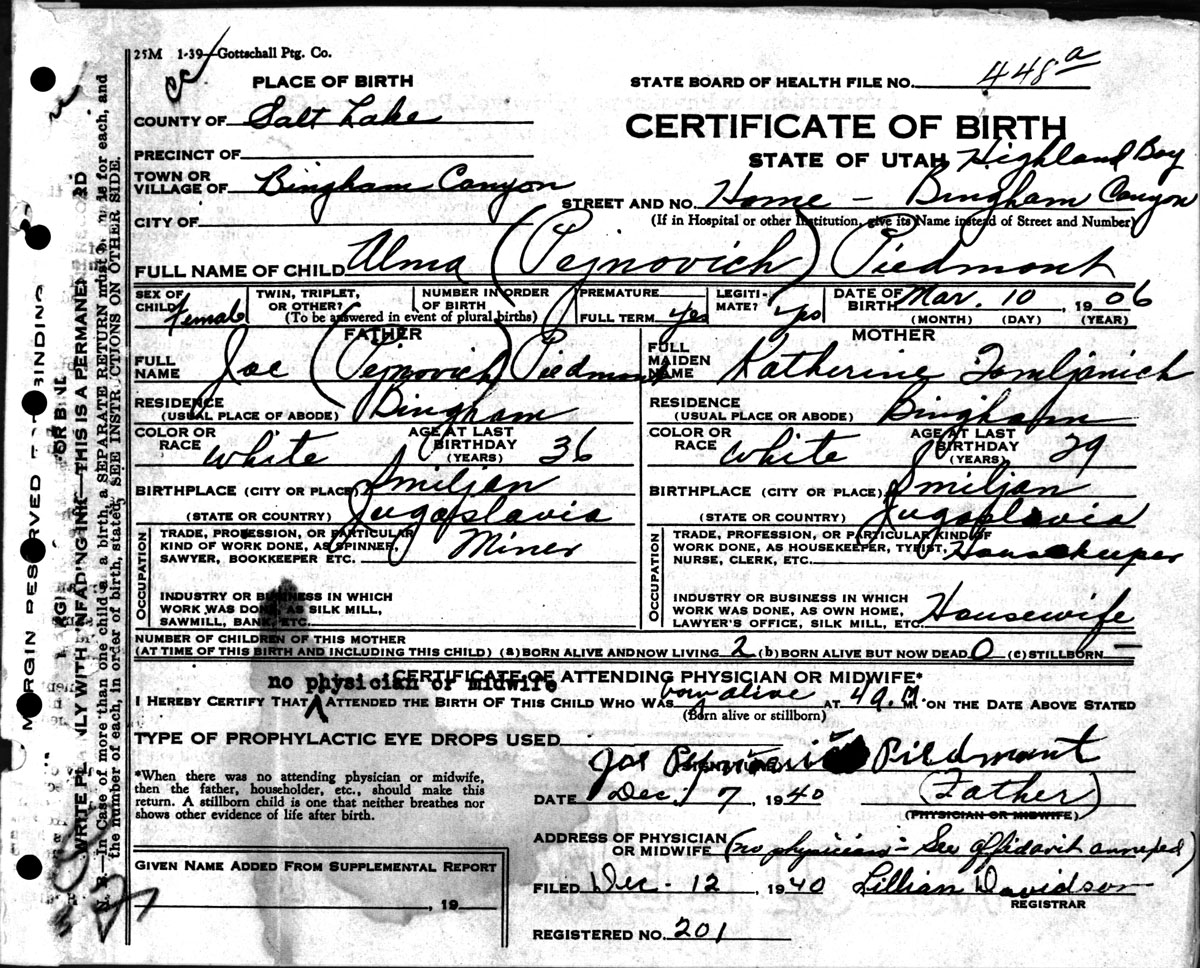 25M 1-39—Gottschall Ptg. Co.
PLACE OF BIRTH
STATE BOARD OF HEALTH FILE NO. 448 a
COUNTY OF Salt Lake
CERTIFICATE OF BIRTH
PRECINCT OF
STATE OF UTAH Highland Boy
TOWN OR VILLAGE OF Bingham Canyon
STREET AND NO. Home – Bingham Canyon
(If in Hospital or other Institution, give its Name instead of Street and Number)
CITY OF
FULL NAME OF CHILD Alma (Pejnovich) Piedmont
SEX OF CHILD Female
TWIN, TRIPLET, OR OTHER?
NUMBER IN ORDER OF BIRTH
(To be answered in event of plural births)
PREMATURE
FULL TERM yes
LEGITI-MATE? yes
DATE OF BIRTH Mar. 10 1906
(MONTH) (DAY) (YEAR)
FATHER
FULL NAME Joe (Pejnovich) Piedmont
RESIDENCE (USUAL PLACE OF ABODE) Bingham
COLOR OR RACE white
AGE AT LAST BIRTHDAY (YEARS) 36
BIRTHPLACE (CITY OR PLACE) Smiljan
(STATE OR COUNTRY) Jugoslavia
OCCUPATION
TRADE, PROFESSION, OR PARTICULAR
KIND OF WORK DONE, AS SPINNER,
SAWYER, BOOKKEEPER ETC. Miner
INDUSTRY OR BUSINESS IN WHICH
WORK WAS DONE, AS SILK MILL,
SAWMILL, BANK, ETC.
MOTHER
FULL MAIDEN NAME Katherine Tomljenich
RESIDENCE (USUAL PLACE OR ABODE) Bingham
COLOR OR RACE white
AGE AT LAST BIRTHDAY (YEARS) 29
BIRTHPLACE (CITY OR PLACE) Smiljan
(STATE OR COUNTRY) Jugoslavia
OCCUPATION
TRADE, PROFESSION, OR PARTICULAR KIND OF
WORK DONE, AS HOUSEKEEPER, TYPIST,
NURSE, CLERK, ETC. Housekeeper
INDUSTRY OR BUSINESS IN WHICH
WORK WAS DONE, AS OWN HOME,
LAWYER'S OFFICE, SILK MILL, ETC. Housewife
NUMBER OF CHILDREN OF THIS MOTHER
(AT TIME OF THIS BIRTH AND INCLUDING THIS CHILD) (a) BORN ALIVE AND NOW LIVING 2 (b) BORN ALIVE BUT NOW DEAD 0 (c) STILLBORN
CERTIFICATE OF ATTENDING PHYSICIAN OR MIDWIFE*
no physician or midwife
I HEREBY CERTIFY THAT ATTENDED THE BIRTH OF THIS CHILD WHO WAS born alive AT 4 a. M. ON THE DATE ABOVE STATED
(Born alive or stillborn)
TYPE OF PROPHYLACTIC EYE DROPS USED
*When there was no attending physician or midwife,
then the father, householder, etc., should make this
return. A stillborn child is one that neither breathes nor
shows other evidence of life after birth.
Joe Piedmont
DATE Dec. 7, 1940 (Father)
(PHYSICIAN OR MIDWIFE)
ADDRESS OF PHYSICIAN OR MIDWIFE (no physician – See affidavit annexed)
GIVEN NAME ADDED FROM SUPPLEMENTAL REPORT
, 19
FILED Dec. 12, 1940 Lillian Davidson
REGISTRAR
REGISTERED NO. 201